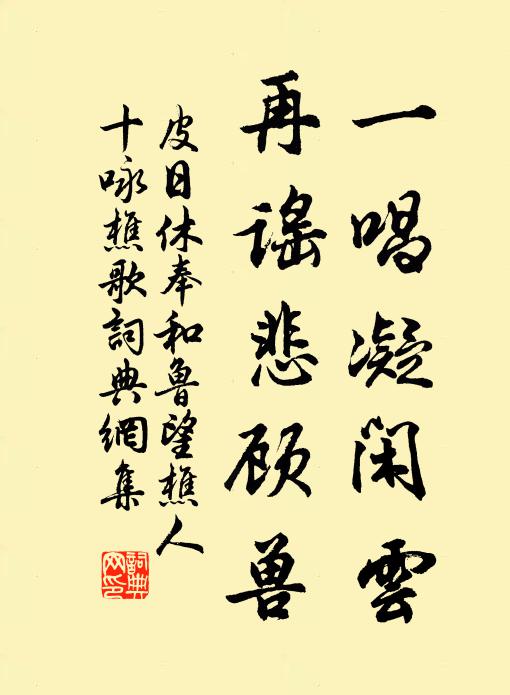 一唱凝閑雲
再謠悲顾兽
皮日休奉和魯望樵人
十咏樵歌詞典網集
詞典网印